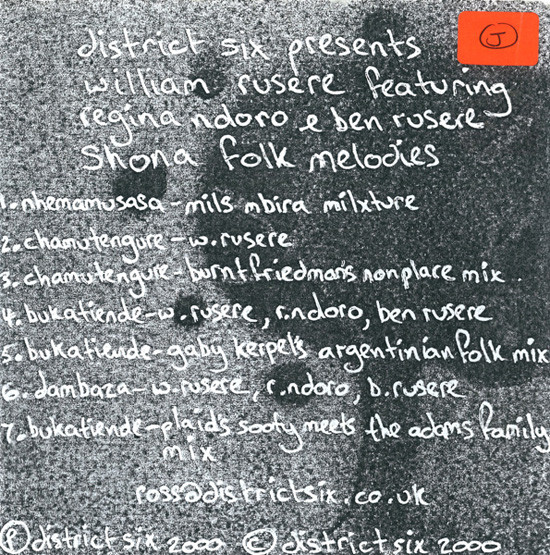 J
district six presents
william rusere featuring
regina ndoro e ben rusere
Shona folk melodies
1. nhemamusasa - mils mbira milxture
2. chamutengure - w. rusere
3. chamutengure - burnt friedman's nonplace mix.
4. bukatiende - w. rusere, r.ndoro, ben rusere
5. bukatiende - gaby kerpel's argentinian folk mix
6. dambaza - w. rusere, r.ndoro, b.rusere
7. bukatiende - plaid's sooty meets the adams family
mix
ross@districtsix.co.uk
℗ district six 2000 © district six 2000